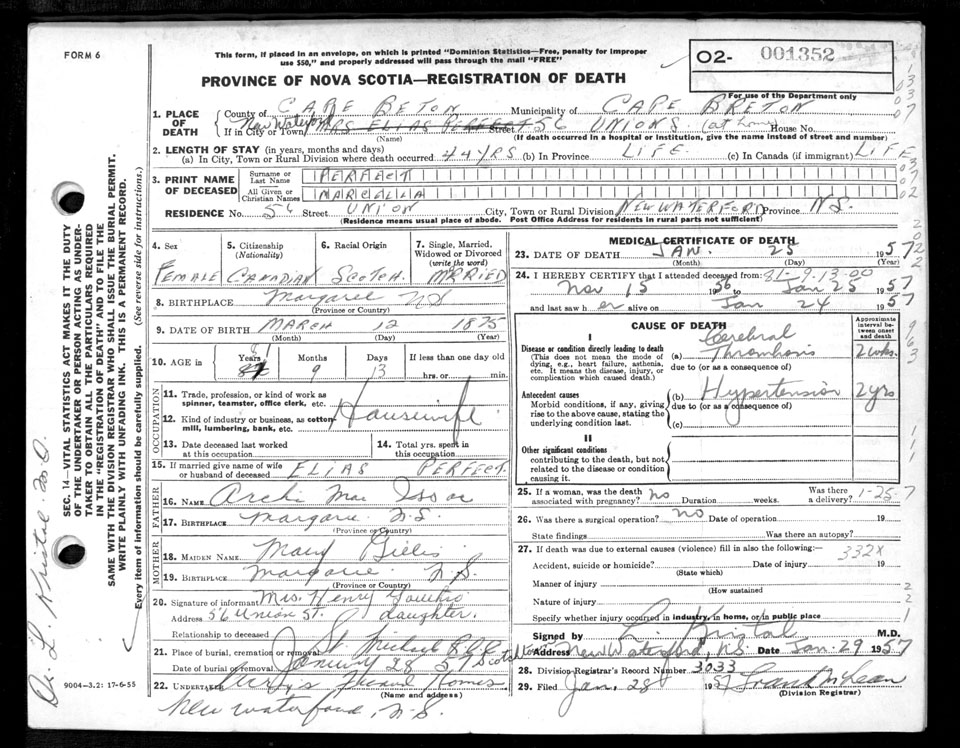 FORM 6
This form, if placed in an envelope, on which is printed "Dominion Statistics—Free, penalty for improper
use $50," and properly addressed will pass through the mail "FREE"
02- 001352
For use of the Department only
PROVINCE OF NOVA SCOTIA—REGISTRATION OF DEATH
1. PLACE OF DEATH
County of CAPE BETON Municipality of CAPE BRETON
If in City or Town New Waterford MRS ELIAS PERFECT Street 56 UNIONS (at home) House No.
(Name) (If death occurred in a hospital or Institution, give the name instead of street and number)
2. LENGTH OF STAY (in years, months and days)
(a) In City, Town or Rural Division where death occurred 44 YRS (b) In Province LIFE (c) In Canada (if immigrant) LIFE
3. PRINT NAME OF DECEASED
Surname or Last Name PERFECT
All Given or Christian Names MARCELLA
RESIDENCE No. 56 Street UNION City, Town or Rural Division NEW WATERFORD Province N.S.
(Residence means usual place of abode. Post Office Address for residents in rural parts not sufficient)
4. Sex FEMALE
5. Citizenship (Nationality) CANADIAN
6. Racial Origin SCOTCH
7. Single, Married, Widowed or Divorced (write the word) MRRIED
8. BIRTHPLACE Margaree NS
(Province or Country)
9. DATE OF BIRTH MARCH 12 1875
(Month) (Day) (Year)
10. AGE in Years 81 Months 9 Days 13 If less than one day old
hrs. or min.
OCCUPATION
11. Trade, profession, or kind of work as spinner, teamster, office clerk, etc. Housewife
12. Kind of industry or business, as cotton mill, lumbering, bank, etc.
13. Date deceased last worked at this occupation
14. Total yrs. spent in this occupation
15. If married give name of wife or husband of deceased ELIAS PERFECT
FATHER
16. NAME Archi Mac Isaac
17. BIRTHPLACE Margarie N.S.
(Province or Country)
MOTHER
18. MAIDEN NAME Mary Gillis
19. BIRTHPLACE Margarie N.S.
(Province or Country)
20. Signature of informant Mrs. Henry
Address 56 Union St. daughter.
Relationship to deceased
21. Place of burial, cremation or removal St. Michael
Date of burial or removal January 28 57
22. UNDERTAKER Homes
(Name and address)
New Waterford, N.S.
MEDICAL CERTIFICATE OF DEATH
23. DATE OF DEATH JAN. 25 1957
(Month) (Day) (Year)
24. I HEREBY CERTIFY that I attended deceased from 81-9-13-00
Nov 15 1956 to Jan 25 1957
and last saw her alive on Jan 24 1957
CAUSE OF DEATH
Approximate interval between onset and death
I
Disease or condition directly leading to death
(This does not mean the mode of dying, e.g., heart failure, asthenia, etc. It means the disease, injury, or complication which caused death.)
(a) Cerebral Thrombosis 2 wks.
due to (or as a consequence of)
Antecedent causes
Morbid conditions, if any, giving rise to the above cause, stating the underlying condition last.
(b) Hypertension 2 yrs
due to (or as a consequence of)
(c)
II
Other significant conditions
contributing to the death, but not related to the disease or condition causing it.
25. If a woman, was the death associated with pregnancy? no Duration weeks. Was there a delivery? 1-25-7
26. Was there a surgical operation? no Date of operation 19
State findings Was there an autopsy?
27. If death was due to external causes (violence) fill in also the following:— 332X
Accident, suicide or homicide? Date of injury 19
(State which)
Manner of injury
(How sustained
Nature of injury
Specify whether injury occurred in industry, in home, or in public place
Signed by L. Kristal M.D.
Address New Waterford, NS Date Jan. 29 1957
28. Division Registrar's Record Number 3033
29. Filed Jan. 28 1957 Frank McLean
(Division Registrar)
SEC. 14—VITAL STATISTICS ACT MAKES IT THE DUTY
OF THE UNDERTAKER OR PERSON ACTING AS UNDER-
TAKER TO OBTAIN ALL THE PARTICULARS REQUIRED
IN THE "REGISTRATION OF DEATH" AND TO FILE THE
SAME WITH THE DIVISION REGISTRAR WHO SHALL ISSUE THE BURIAL PERMIT.
WRITE PLAINLY WITH UNFADING INK. THIS IS A PERMANENT RECORD.
Every item of information should be carefully supplied. (See reverse side for instructions.)
9004-3.2: 17-6-55